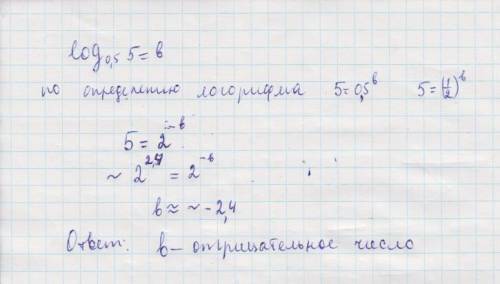 log₀,₅ 5 = в
по определению логорифма 5 = 0,5ᵇ 5 = (1/2)ᵇ
5 = 2⁻ᵇ
~ 2²,⁴ = 2⁻ᵇ
в ≈ ~ -2,4
Ответ: в – отрицательное число